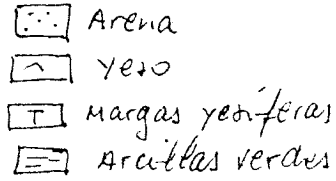 Arena
Yeso
Margas yesiferas
Arcillas verdes